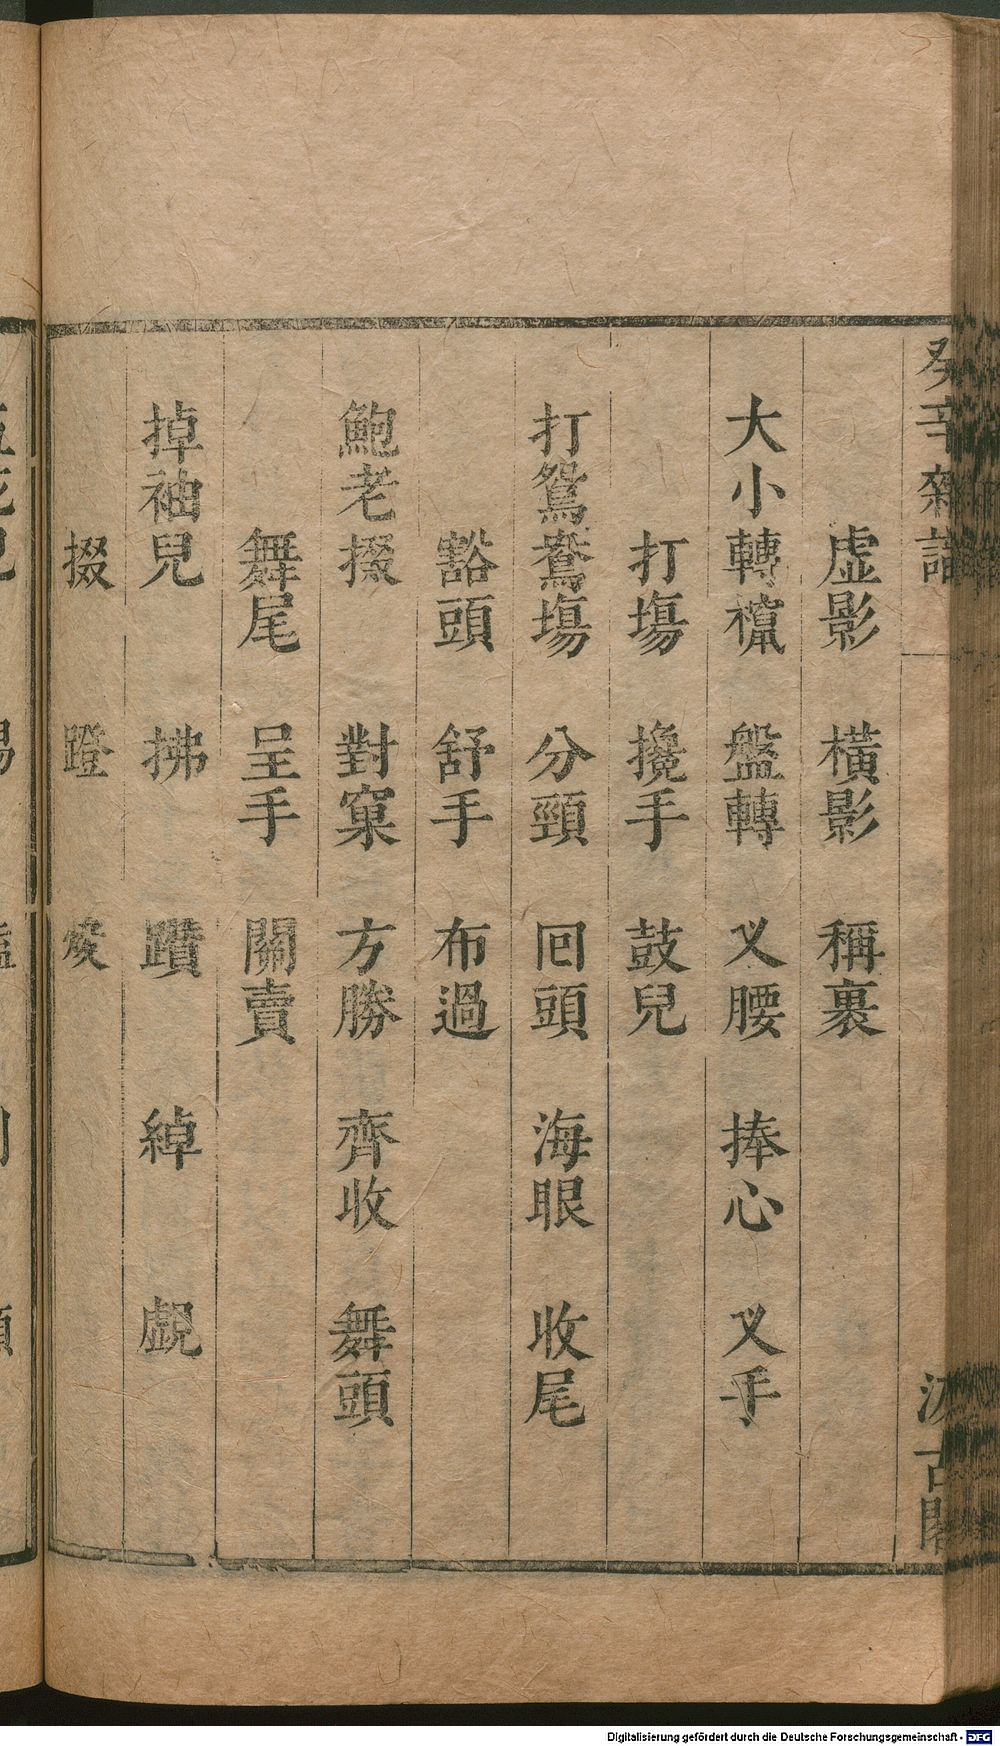 癸辛雜識
汲古閣
虛影　橫影　稱裹
大小轉攛　盤轉　叉腰　捧心　叉手
打塲　攙手　鼓兒
打鴛鴦塲　分頸　回頭　海眼　收尾
豁頭　舒手　布過
鮑老掇　對窠　方勝　齊收　舞頭
舞尾　呈手　關賣
掉袖兒　拂　躦　綽　覷
掇　蹬　焌
Digitalisierung gefördert durch die Deutsche Forschungsgemeinschaft - DFG